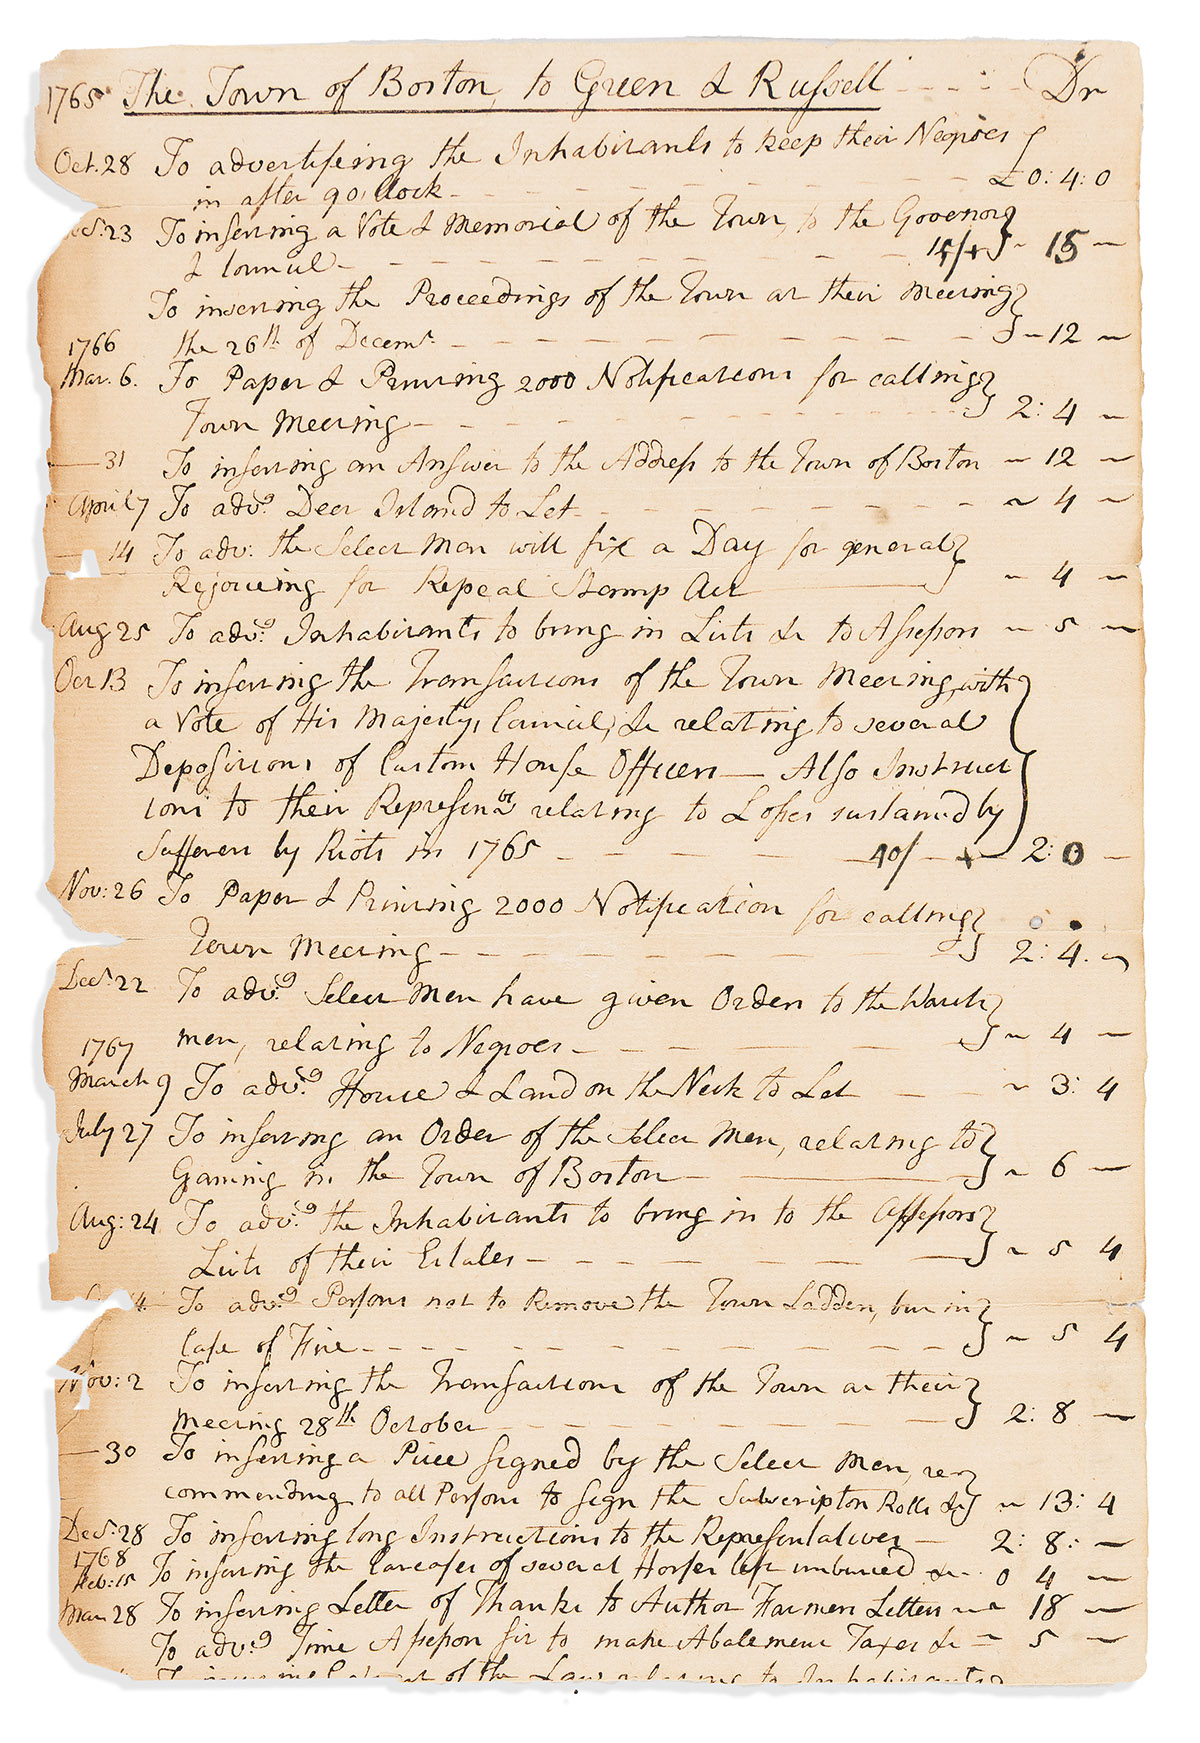 1765 The Town of Boston, to Green & Russell Dr
Oct. 28 To advertiseing the Inhabitants to keep their Negroes
in after 9 o'Clock £ 0: 4: 0
23 To inserting a Vote & Memorial of the Town, to the Govenor
& Council 15
To inserting the Proceedings of the Town at their Meeting
the 26th of Decemr. 12
1766
Mar. 6. To Paper & Printing 2000 Notifications for calling
Town Meeting 2: 4
31 To inserting an Answer to the Address to the Town of Boston 12
April 7 To advg. Deer Island to Let 4
14 To adv: the Select Men will fix a Day for general
Rejoiceing for Repeal Stamp Act 4
Aug 25 To advg. Inhabitants to bring in Lists &c to Assessors 5
Oct 13 To inserting the Transactions of the Town Meeting, with
a Vote of His Majestys Council, &c relating to several
Depositions of Custom House Officers — Also Instruct
ions to their Represenves relating to Losses sustained by
Sufferers by Riots in 1765 40/ 2: 0
Nov: 26 To Paper & Printing 2000 Notification for calling
Town Meeting 2: 4.
Decr. 22 To advg. Select Men have given Orders to the Watch
men, relating to Negroes 4
1767
March 9 To advg. House & Land on the Neck to Let 3: 4
July 27 To inserting an Order of the Select Men, relating to
Gaming in the Town of Boston 6
Aug: 24 To advg. the Inhabitants to bring in to the Assessors
Lists of their Estates 5 4
To advg. Persons not to Remove the Town Ladders, but in
Case of Fire 5 4
Nov: 2 To inserting the Transactions of the Town at their
Meeting 28th October 2: 8
30 To inserting a Piece signed by the Select Men, re
commending to all Persons to sign the Subscription Rolls &c 13: 4
Decr: 28 To inserting long Instructions to the Representatives 2: 8:
1768
Feb: 15 To inserting the Carcases of several Horses left unburied &c. 0 4
Mar 28 To inserting Letter of Thanks to Author Farmers Letters 18
To advg. Time Assessors sit to make Abatement Taxes &c 5
of the Law relating to Inhabitants